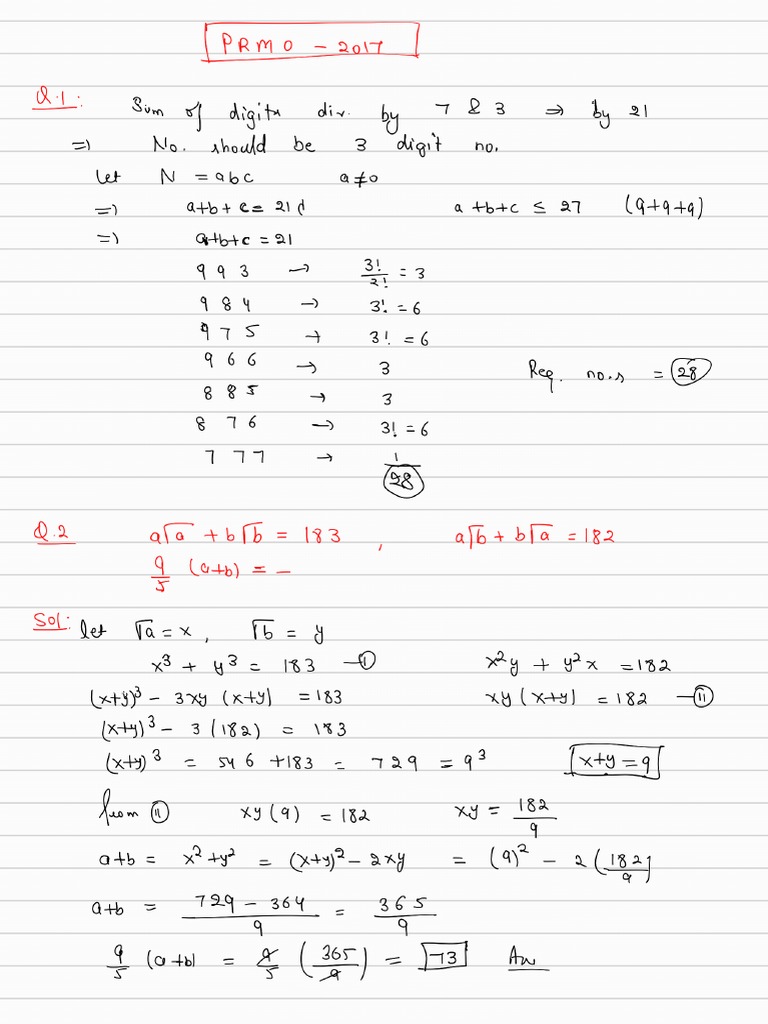 PRMO - 2017
Q.1: Sum of digits div. by 7 & 3 ⇒ by 21
⇒ No. should be 3 digit no.
let N = abc a≠0
⇒ a+b+c = 21 a+b+c ≤ 27 (9+9+9)
⇒ a+b+c = 21
9 9 3 → 3!/2! = 3
9 8 4 → 3! = 6
9 7 5 → 3! = 6
9 6 6 → 3 Req. no.s = 28
8 8 5 → 3
8 7 6 → 3! = 6
7 7 7 → 1
28
Q.2 a√a + b√b = 183 , a√b + b√a = 182
9/5 (a+b) = -
Sol: let √a = x, √b = y
x³ + y³ = 183 —(I) x²y + y²x = 182
(x+y)³ - 3xy (x+y) = 183 xy (x+y) = 182 —(II)
(x+y)³ - 3(182) = 183
(x+y)³ = 546 + 183 = 729 = 9³ x+y = 9
from (II) xy(9) = 182 xy = 182/9
a+b = x²+y² = (x+y)² - 2xy = (9)² - 2(182/9)
a+b = (729 - 364)/9 = 365/9
9/5 (a+b) = 9/5 (365/9) = 73 Ans